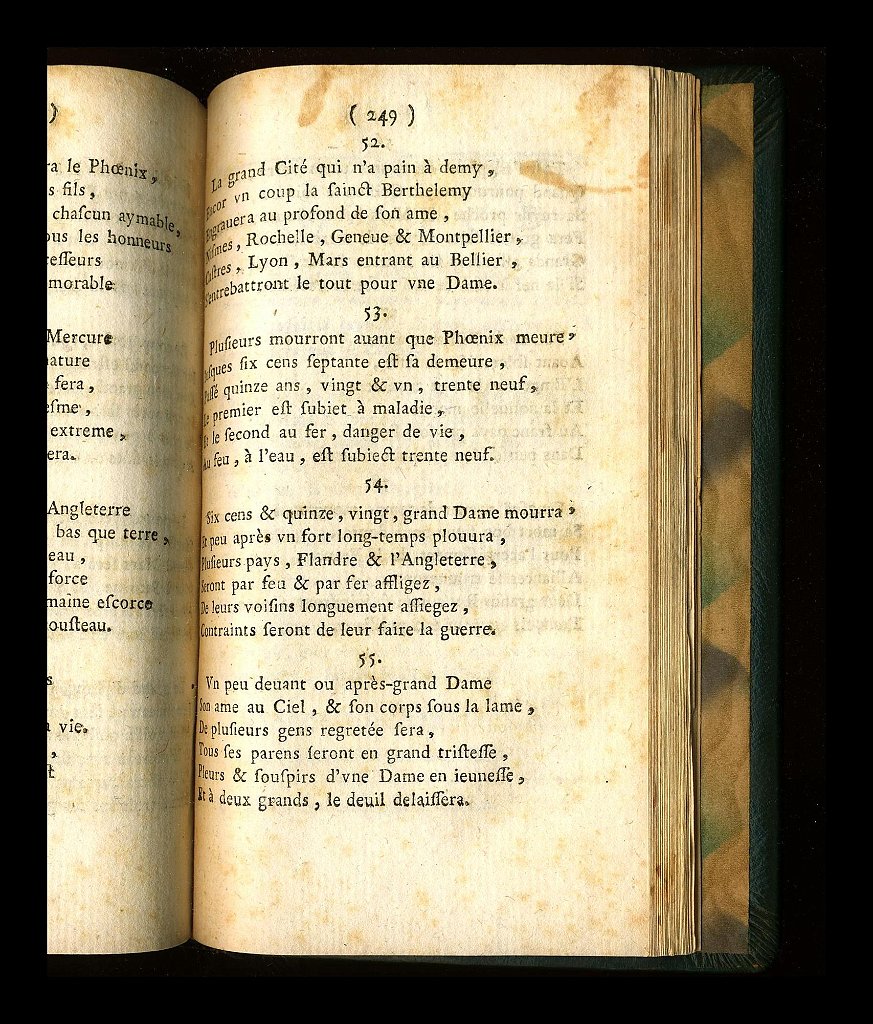 )
le Phœnix,
s fils,
chaſcun aymable,
ous les honneurs
eſſeurs
morable
Mercure
ature
fera,
eſme,
extreme,
era.
Angleterre
bas que terre,
eau,
force
maine eſcorce
ouſteau.
s
vie.
,
t
( 249 )
52.
La grand Cité qui n'a pain à demy,
Encor vn coup la ſainct Berthelemy
Engrauera au profond de ſon ame,
Niſmes, Rochelle, Geneue & Montpellier,
Caſtres, Lyon, Mars entrant au Bellier,
S'entrebattront le tout pour vne Dame.
53.
Pluſieurs mourront auant que Phœnix meure,
Iuſques ſix cens ſeptante eſt ſa demeure,
Paſſé quinze ans, vingt & vn, trente neuf,
Le premier eſt ſubiet à maladie,
Et le ſecond au fer, danger de vie,
Au feu, à l'eau, eſt ſubiect trente neuf.
54.
Six cens & quinze, vingt, grand Dame mourra,
Et peu après vn fort long-temps plouura,
Pluſieurs pays, Flandre & l'Angleterre,
Seront par feu & par fer affligez,
De leurs voiſins longuement aſſiegez,
Contraints ſeront de leur faire la guerre.
55.
Vn peu deuant ou après-grand Dame
Son ame au Ciel, & ſon corps ſous la lame,
De pluſieurs gens regretée ſera,
Tous ſes parens ſeront en grand triſteſſe,
Pleurs & ſouſpirs d'vne Dame en ieuneſſe,
Et à deux grands, le deuil delaiſſera.